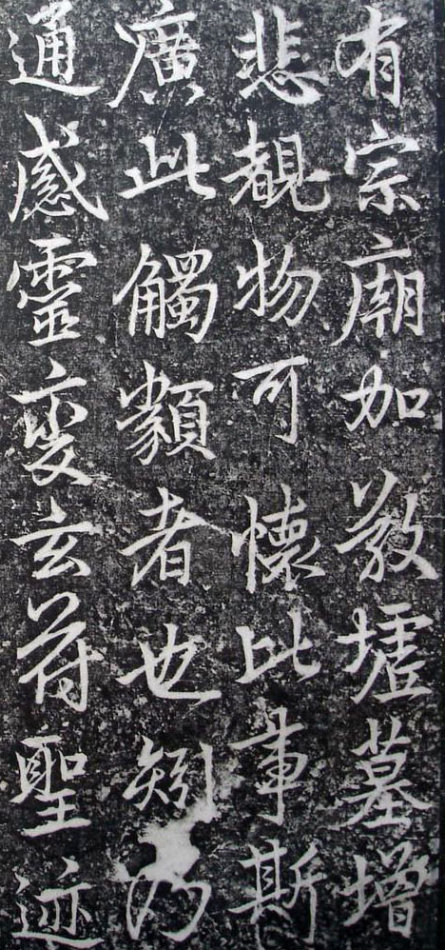 有宗廟加敬墟墓增
悲覩物可懷比事斯
廣此觸類者也矧乃
通感靈變玄符聖迹